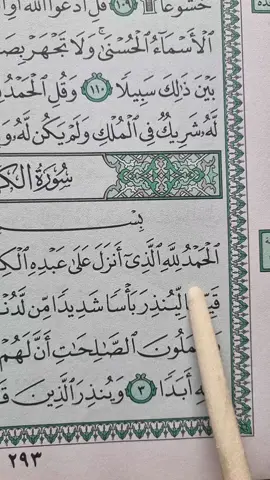 خُشُوعًا ۩ ١٠٩ قُلِ ادْعُوا اللَّهَ أَوِ
الْأَسْمَاءُ الْحُسْنَىٰ وَلَا تَجْهَرْ بِصَ
بَيْنَ ذَٰلِكَ سَبِيلًا ١١٠ وَقُلِ الْحَمْدُ
لَّهُ شَرِيكٌ فِي الْمُلْكِ وَلَمْ يَكُن لَّهُ وَ
سُورَةُ الْكَ
بِسْ
الْحَمْدُ لِلَّهِ الَّذِي أَنزَلَ عَلَىٰ عَبْدِهِ الْكِ
لِّيُنذِرَ بَأْسًا شَدِيدًا مِّن لَّدُنْ
يَعْمَلُونَ الصَّالِحَاتِ أَنَّ لَهُمْ
أَبَدًا ٣ وَيُنذِرَ الَّذِينَ قَ
٢٩٣